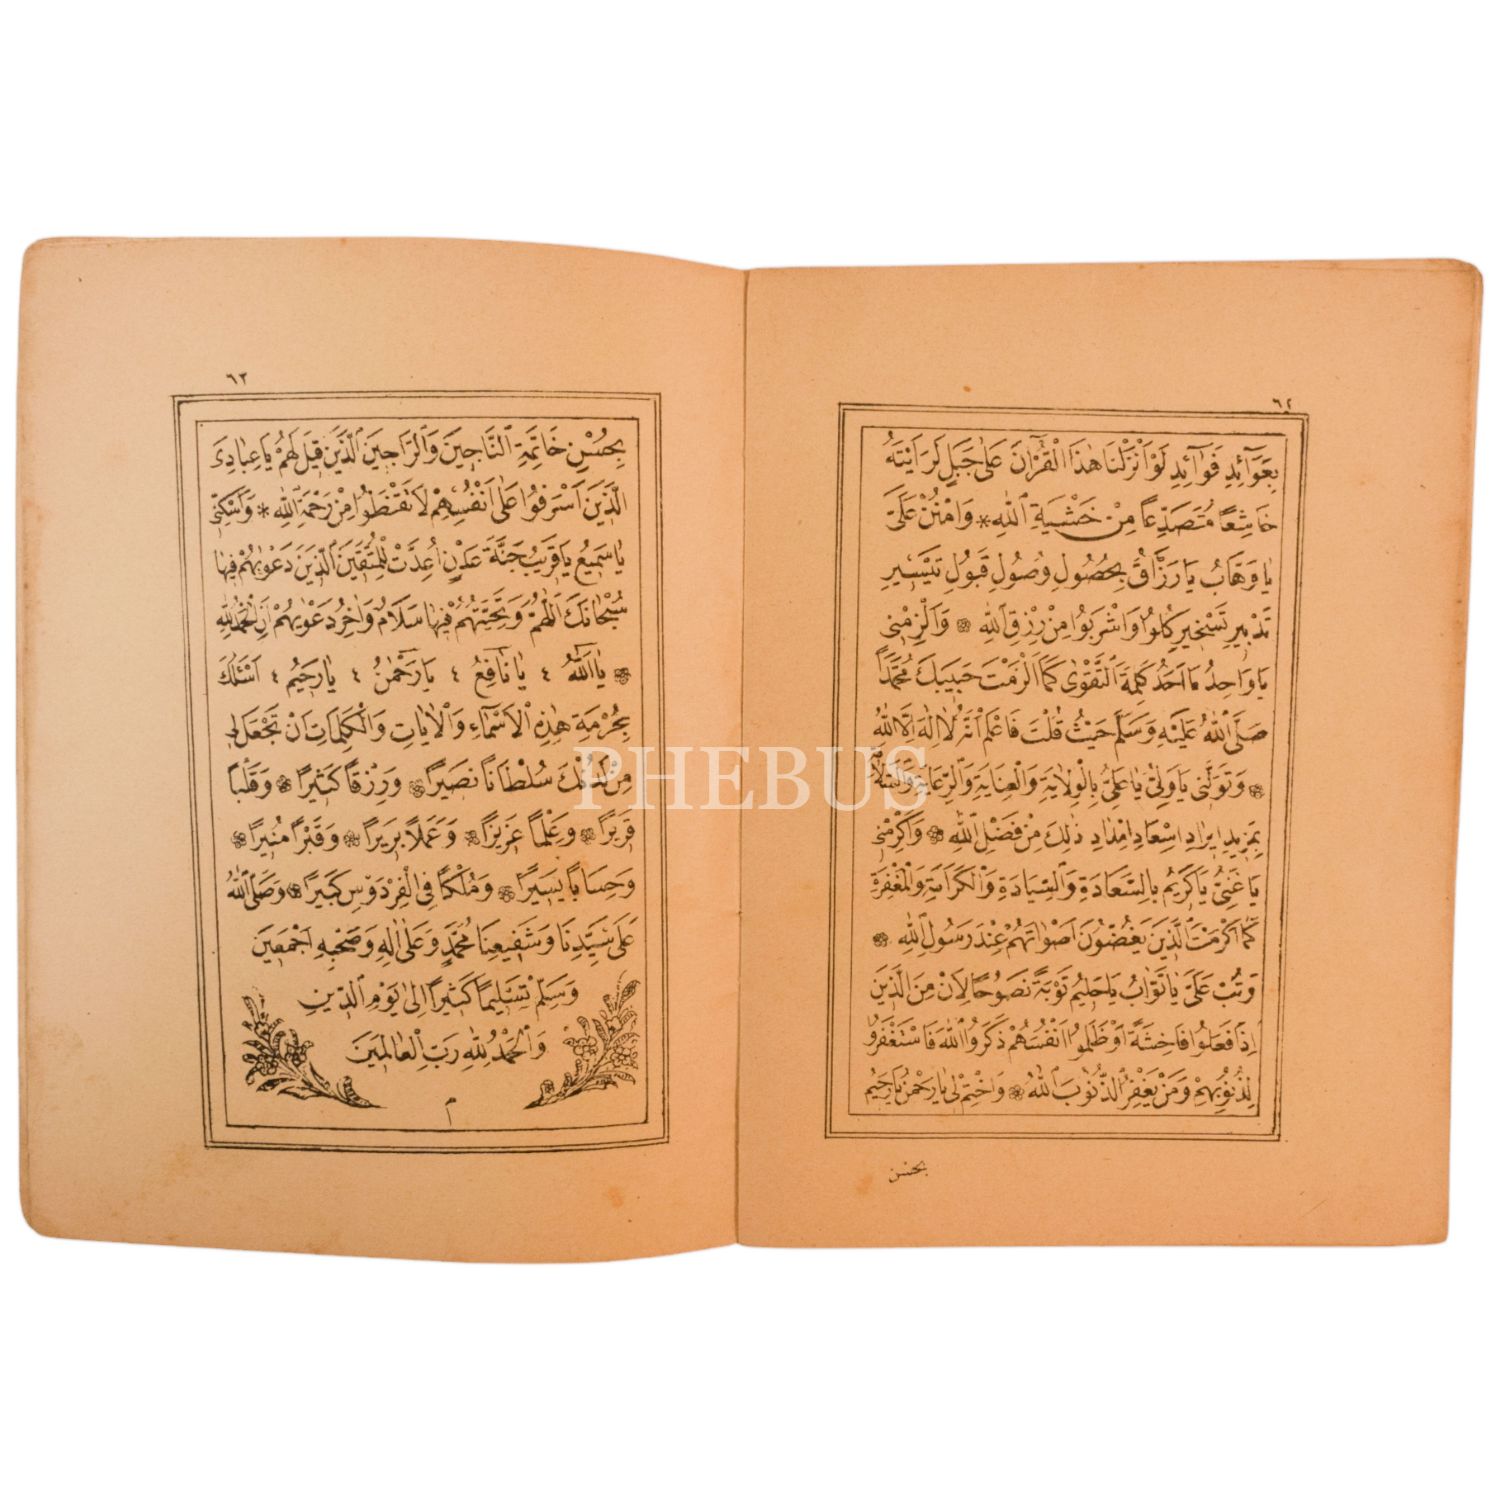 ٦٢
بِعَوَآئِدِ فَوَآئِدِ لَوْ اَنْزَلْنَا هٰذَا الْقُرْاٰنَ عَلٰى جَبَلٍ لَرَاَيْتَهُ
خَاشِعًا مُتَصَدِّعًا مِنْ خَشْيَةِ اللّٰهِ * وَامْنُنْ عَلَىَّ
يَا وَهَّابُ يَا رَزَّاقُ بِحُصُولِ وُصُولِ قَبُولِ تَيْسِيرِ
تَدْبِيرِ تَسْخِيرِ كُلُوا وَاشْرَبُوا مِنْ رِزْقِ اللّٰهِ * وَاَلْزِمْنِى
يَا وَاحِدُ يَا اَحَدُ كَلِمَةَ التَّقْوٰى كَمَا اَلْزَمْتَ حَبِيبَكَ مُحَمَّدًا
صَلَّى اللّٰهُ عَلَيْهِ وَسَلَّمَ حَيْثُ قُلْتَ فَاعْلَمْ اَنَّهُ لَا اِلٰهَ اِلَّا اللّٰهُ
* وَتَوَلَّنِى يَا وَلِىُّ يَا عَلِىُّ بِالْوِلَايَةِ وَالْعِنَايَةِ وَالرِّعَايَةِ وَالسَّلَامَةِ
بِمَزِيدِ اِيرَادِ اِسْعَادِ اِمْدَادِ ذٰلِكَ مِنْ فَضْلِ اللّٰهِ * وَاَكْرِمْنِى
يَا غَنِىُّ يَا كَرِيمُ بِالسَّعَادَةِ وَالسِّيَادَةِ وَالْكَرَامَةِ وَالْمَغْفِرَةِ
كَمَا اَكْرَمْتَ الَّذِينَ يَغُضُّونَ اَصْوَاتَهُمْ عِنْدَ رَسُولِ اللّٰهِ *
وَتُبْ عَلَىَّ يَا تَوَّابُ يَا حَلِيمُ تَوْبَةً نَصُوحًا لِاَنْ مِنَ الَّذِينَ
اِذَا فَعَلُوا فَاحِشَةً اَوْ ظَلَمُوا اَنْفُسَهُمْ ذَكَرُوا اللّٰهَ فَاسْتَغْفَرُو
لِذُنُوبِهِمْ وَمَنْ يَغْفِرُ الذُّنُوبَ اِلَّا اللّٰهُ * وَاخْتِمْ لِى يَا رَحْمٰنُ يَا رَحِيمُ
بحسن
٦٣
بِحُسْنِ خَاتِمَةِ النَّاجِينَ وَالرَّاجِينَ الَّذِينَ قِيلَ لَهُمْ يَا عِبَادِىَ
الَّذِينَ اَسْرَفُوا عَلٰى اَنْفُسِهِمْ لَا تَقْنَطُوا مِنْ رَحْمَةِ اللّٰهِ * وَاَسْكِنِّى
يَا سَمِيعُ يَا قَرِيبُ جَنَّةَ عَدْنٍ اُعِدَّتْ لِلْمُتَّقِينَ الَّذِينَ دَعْوٰيهُمْ فِيهَا
سُبْحَانَكَ اللّٰهُمَّ وَتَحِيَّتُهُمْ فِيهَا سَلَامٌ وَاٰخِرُ دَعْوٰيهُمْ اَنِ الْحَمْدُ لِلّٰهِ
* يَا اَللّٰهُ ٤ يَا نَافِعُ ٤ يَا رَحْمٰنُ ٤ يَا رَحِيمُ ٤ اَسْئَلُكَ
بِحُرْمَةِ هٰذِهِ الْاَسْمَاءِ وَالْاٰيَاتِ وَالْكَلِمَاتِ اَنْ تَجْعَلَ لِى
مِنْ لَدُنْكَ سُلْطَانًا نَصِيرًا * وَرِزْقًا كَثِيرًا * وَقَلْبًا
قَرِيرًا * وَعِلْمًا غَزِيرًا * وَعَمَلًا بَرِيرًا * وَقَبْرًا مُنِيرًا *
وَحِسَابًا يَسِيرًا * وَمُلْكًا فِى الْفِرْدَوْسِ كَبِيرًا * وَصَلَّى اللّٰهُ
عَلٰى سَيِّدِنَا وَشَفِيعِنَا مُحَمَّدٍ وَعَلٰى اٰلِهِ وَصَحْبِهِ اَجْمَعِينَ
وَسَلَّمَ تَسْلِيمًا كَثِيرًا اِلٰى يَوْمِ الدِّينِ
وَالْحَمْدُ لِلّٰهِ رَبِّ الْعَالَمِينَ
م
PHEBUS